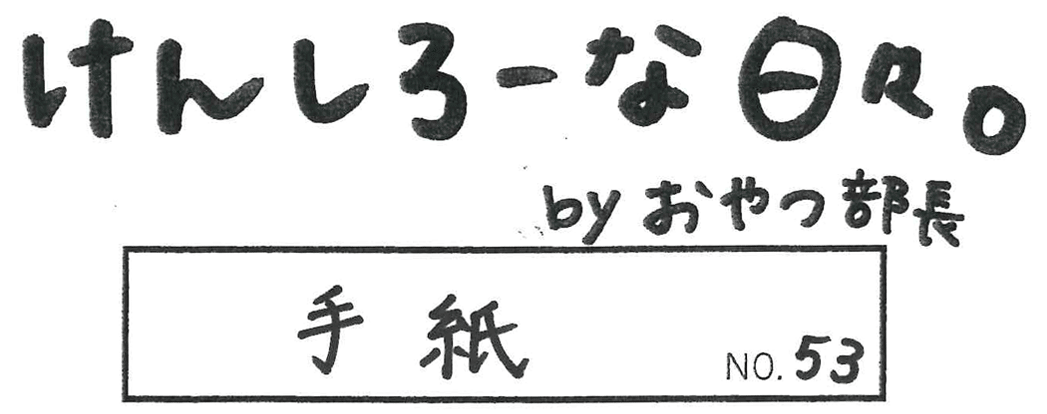 けんしろーな日々。
by おやつ部長
手紙 NO. 53